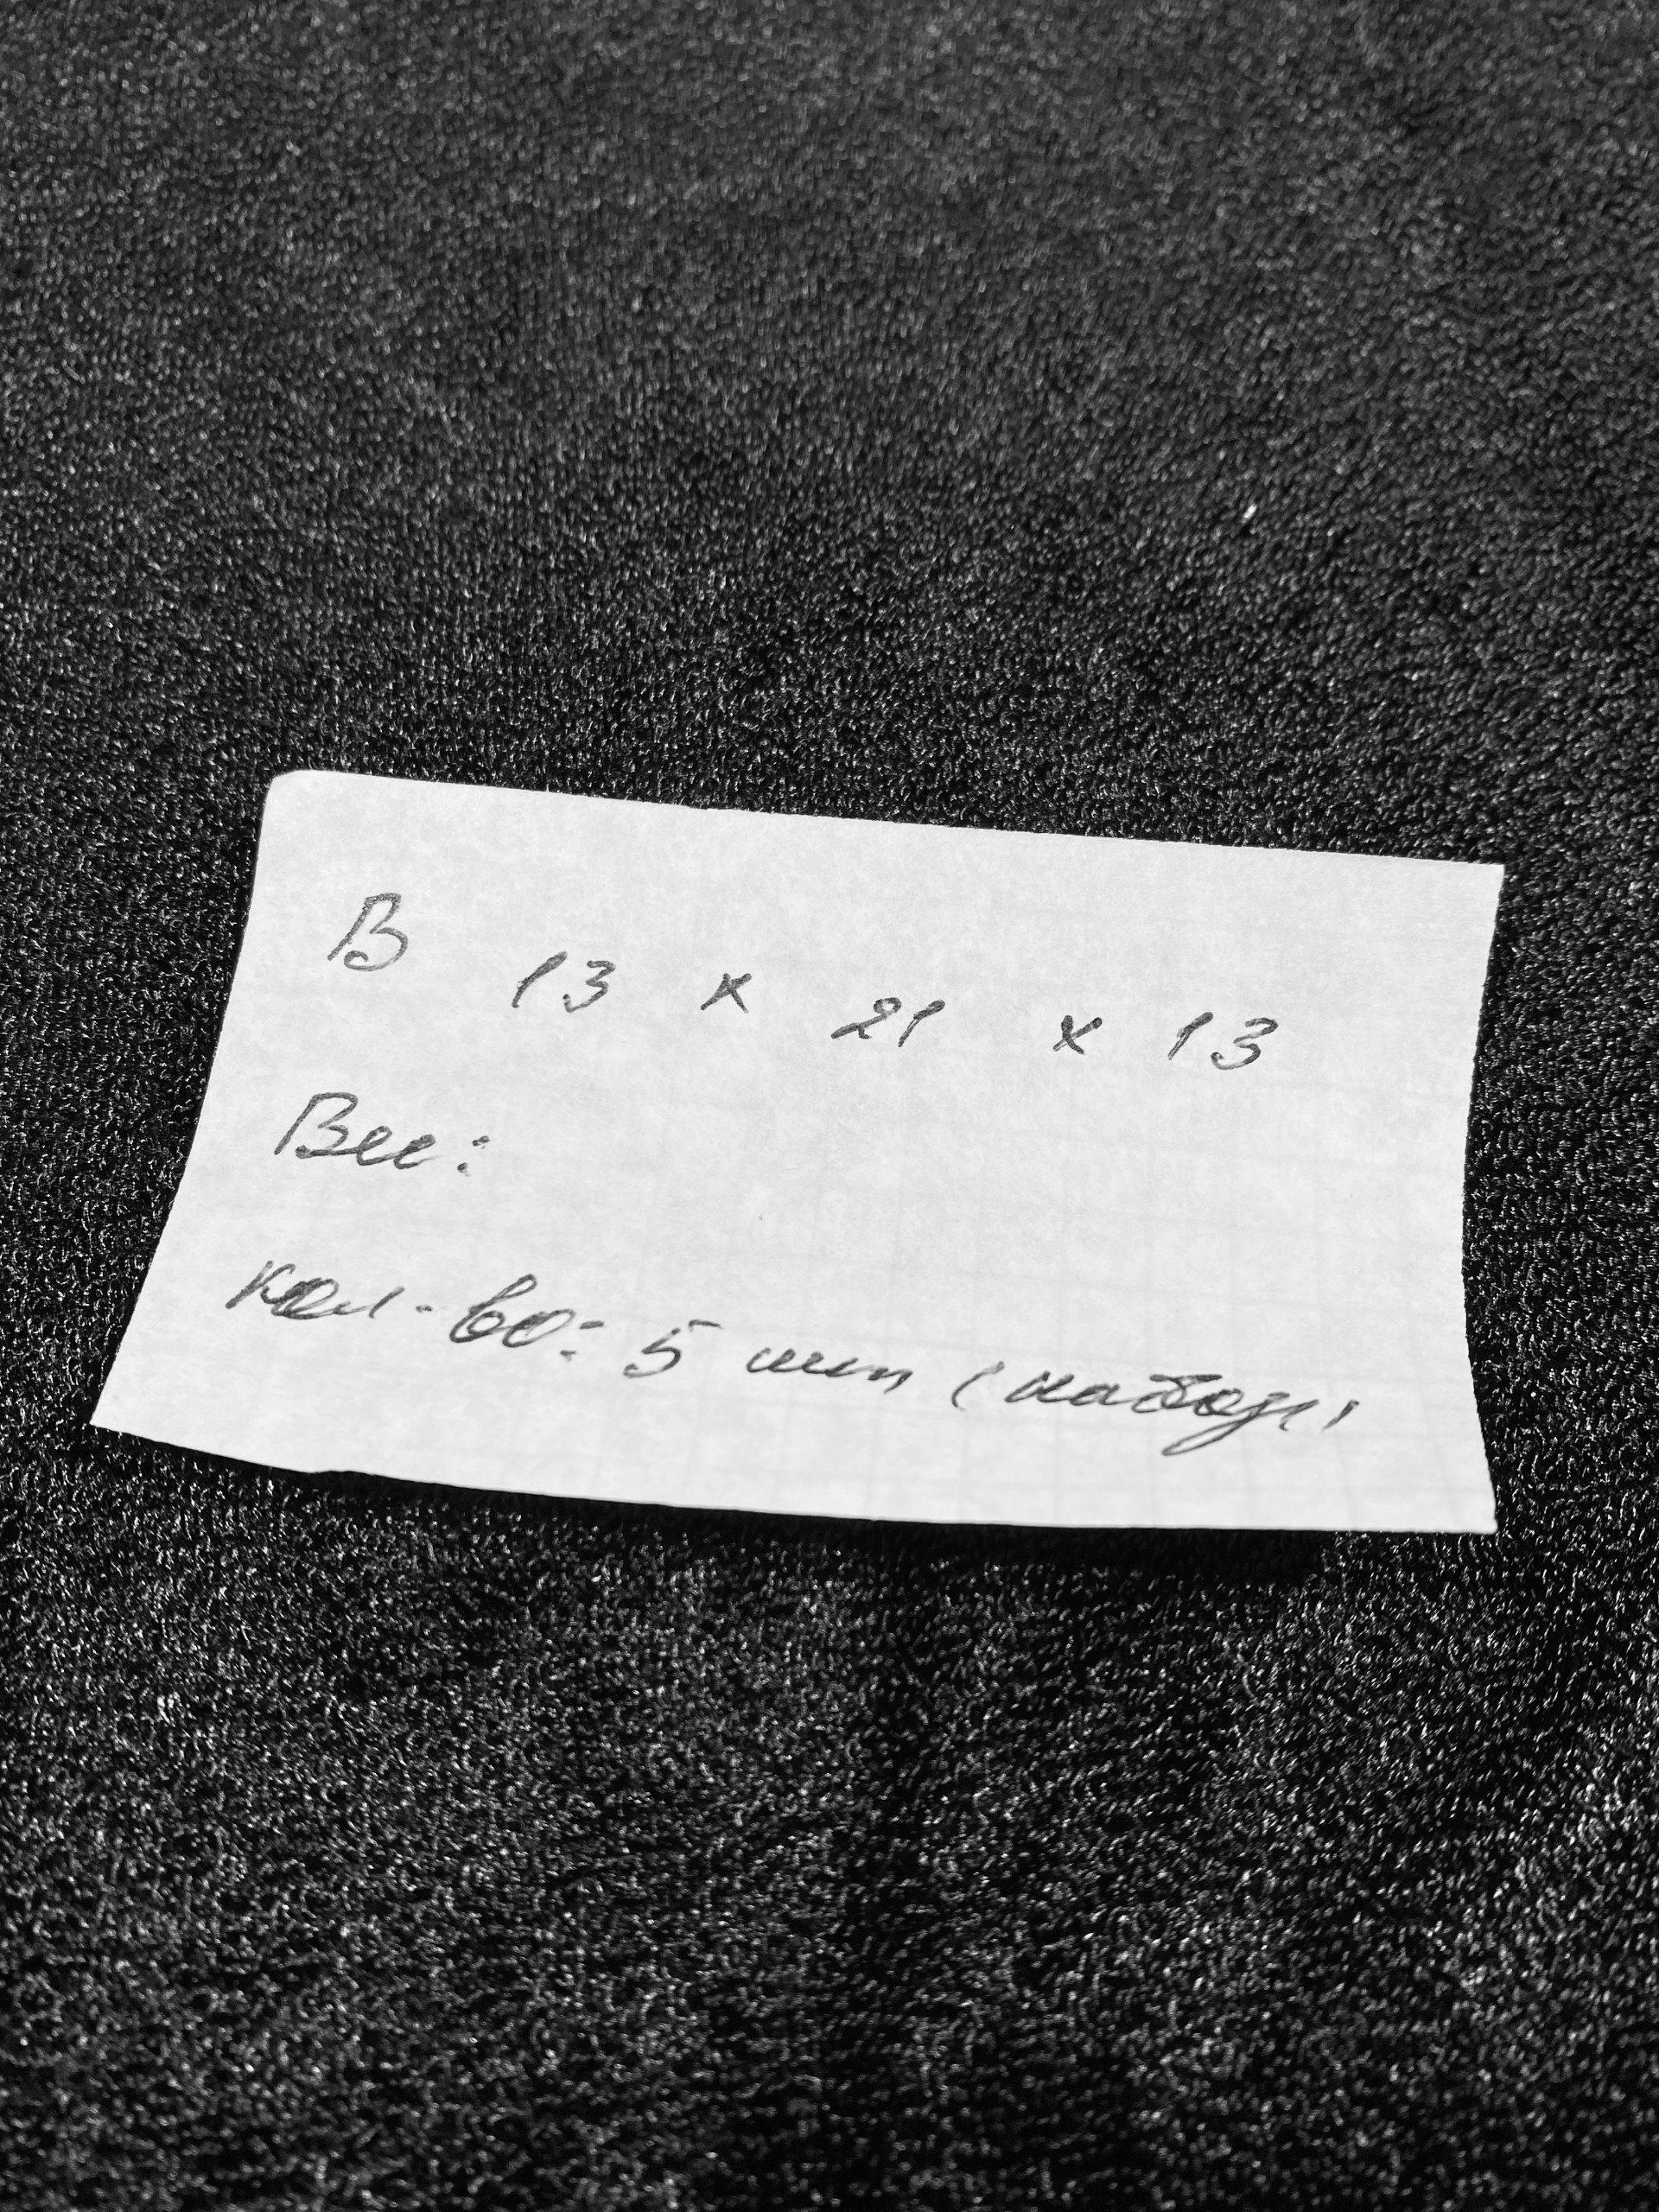 В 13 x 21 x 13
Вес:
кол-во: 5 шт (наборы)